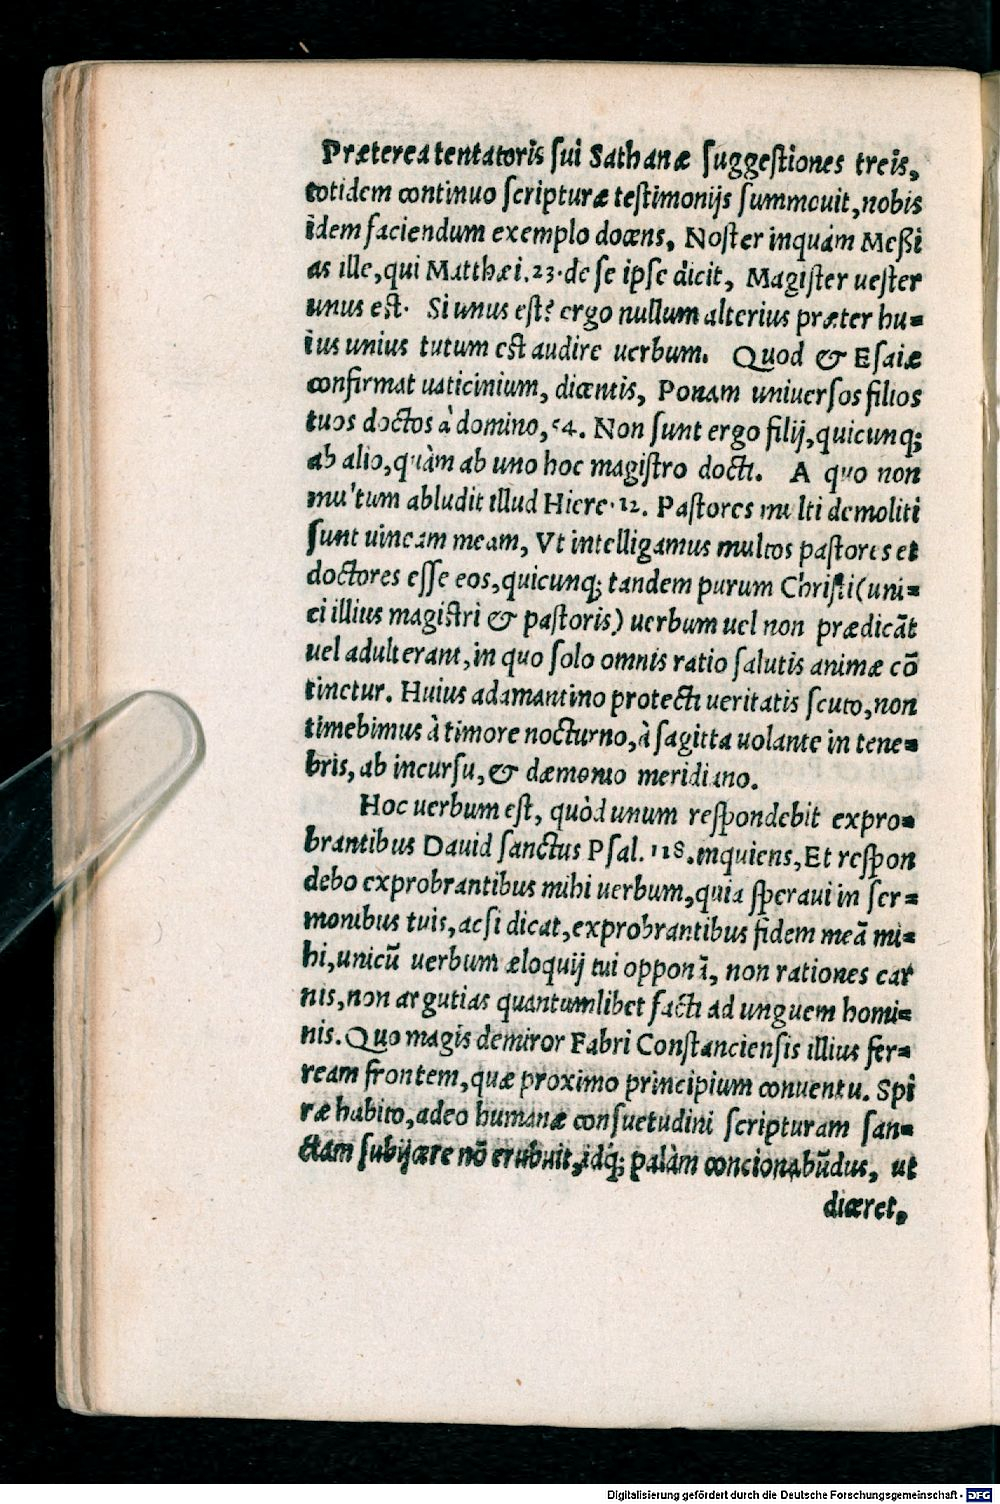 Prætereа tentatoris sui Sathanæ suggeſtiones treis,
totidem continuo ſcripturæ teſtimonijs ſummouit, nobis
idem faciendum exemplo docens, Noſter inquàm Meßi
as ille, qui Matthæi. 23. de ſe ipſe dicit, Magiſter ueſter
unus eſt. Si unus eſt? ergo nullum alterius præter hu=
ius unius tutum eſt audire uerbum. Quod & Eſaiæ
confirmat uaticinium, dicentis, Ponam uniuerſos filios
tuos doctos à domino, 54. Non ſunt ergo filij, quicunq;
ab alio, quàm ab uno hoc magiſtro docti. A quo non
multum abludit illud Hiere. 12. Paſtores multi demoliti
ſunt uineam meam, Vt intelligamus multos paſtores et
doctores eſſe eos, quicunq; tandem purum Chriſti (uni=
ci illius magiſtri & paſtoris) uerbum uel non prædicãt
uel adulterant, in quo ſolo omnis ratio ſalutis animæ cõ
tinetur. Huius adamantino protecti ueritatis ſcuto, non
timebimus à timore nocturno, à ſagitta uolante in tene=
bris, ab incurſu, & dæmonio meridiano.
Hoc uerbum eſt, quòd unum reſpondebit expro=
brantibus Dauid ſanctus Pſal. 118. inquiens, Et reſpon
debo exprobrantibus mihi uerbum, quia ſperaui in ſer=
monibus tuis, ac ſi dicat, exprobrantibus fidem meã mi=
hi, unicũ uerbum æloquij tui opponã, non rationes car
nis, non argutias quantumlibet facti ad unguem homi=
nis. Quo magis demiror Fabri Conſtancienſis illius fer=
ream frontem, quæ proximo principium conuentu. Spi
ræ habito, adeo humanæ conſuetudini ſcripturam ſan=
ctam ſubijcere nõ erubuit, idq́; palàm concionabũdus, ut
diceret,
Digitalisierung gefördert durch die Deutsche Forschungsgemeinschaft - DFG